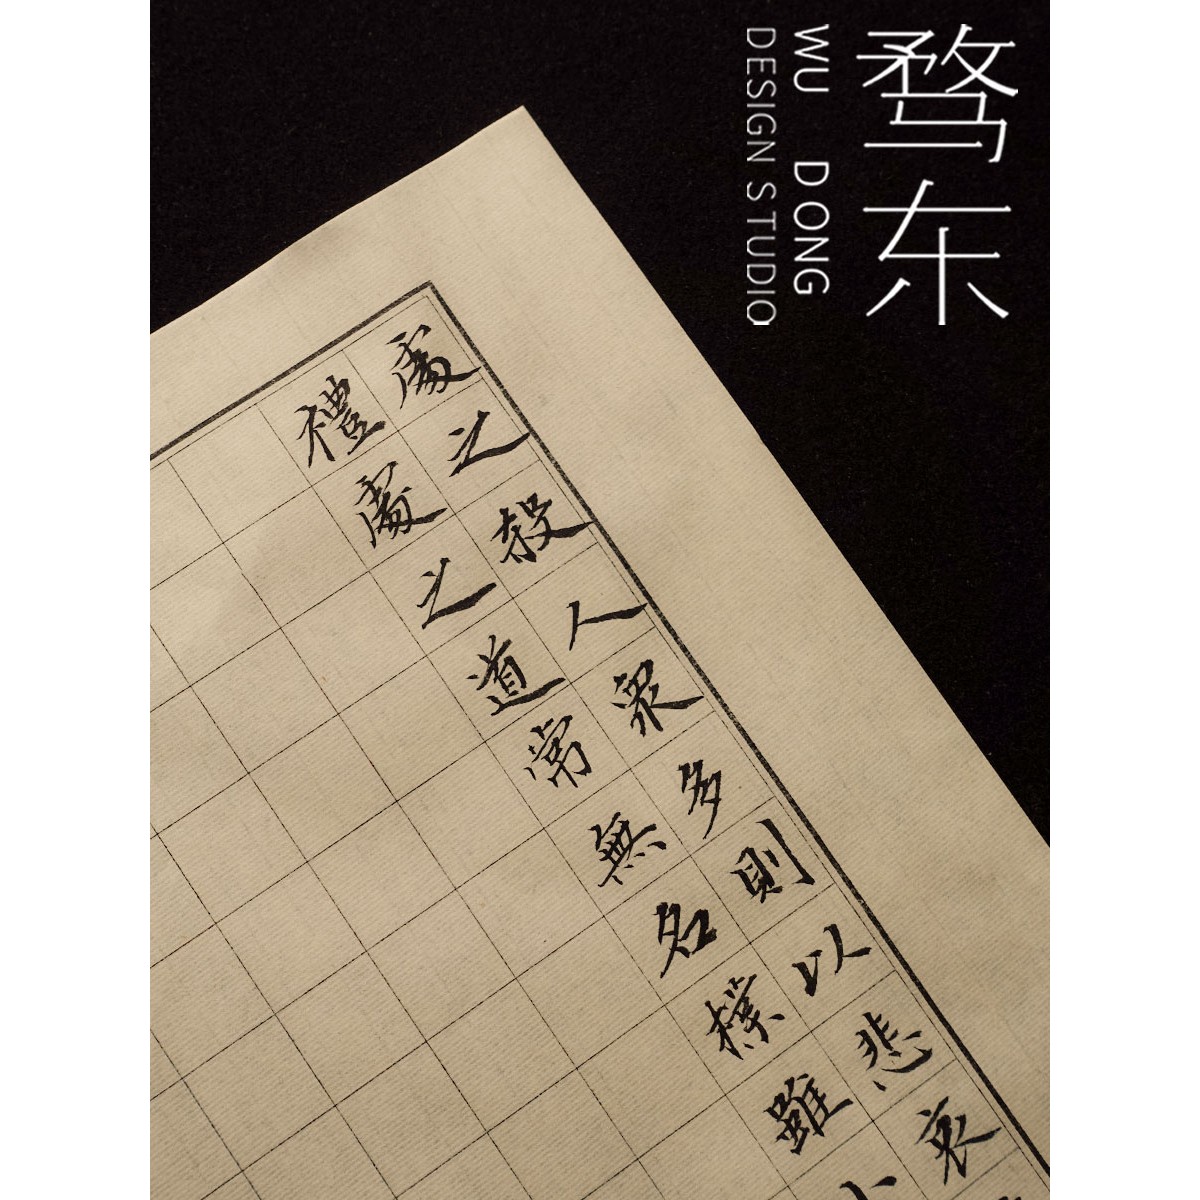 骛东
WU DONG
DESIGN STUDIO
處之殺人眾多則以悲哀
禮處之道常無名樸雖